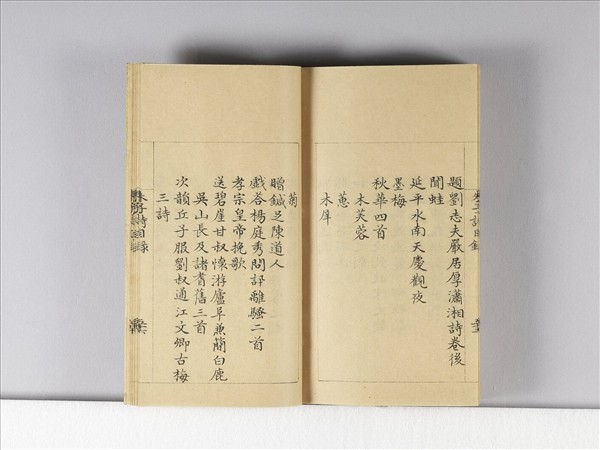 題劉志夫嚴居厚瀟湘詩卷後
聞蛙
延平水南天慶觀夜
墨梅
秋華四首
木芙蓉
蕙
木犀
菊
贈鍼足陳道人
戲荅楊庭秀問訊離騷二首
孝宗皇帝挽歌
送碧崖甘叔懷游廬阜兼簡白鹿
吳山長及諸耆舊三首
次韻丘子服劉叔通江文卿古梅
三詩